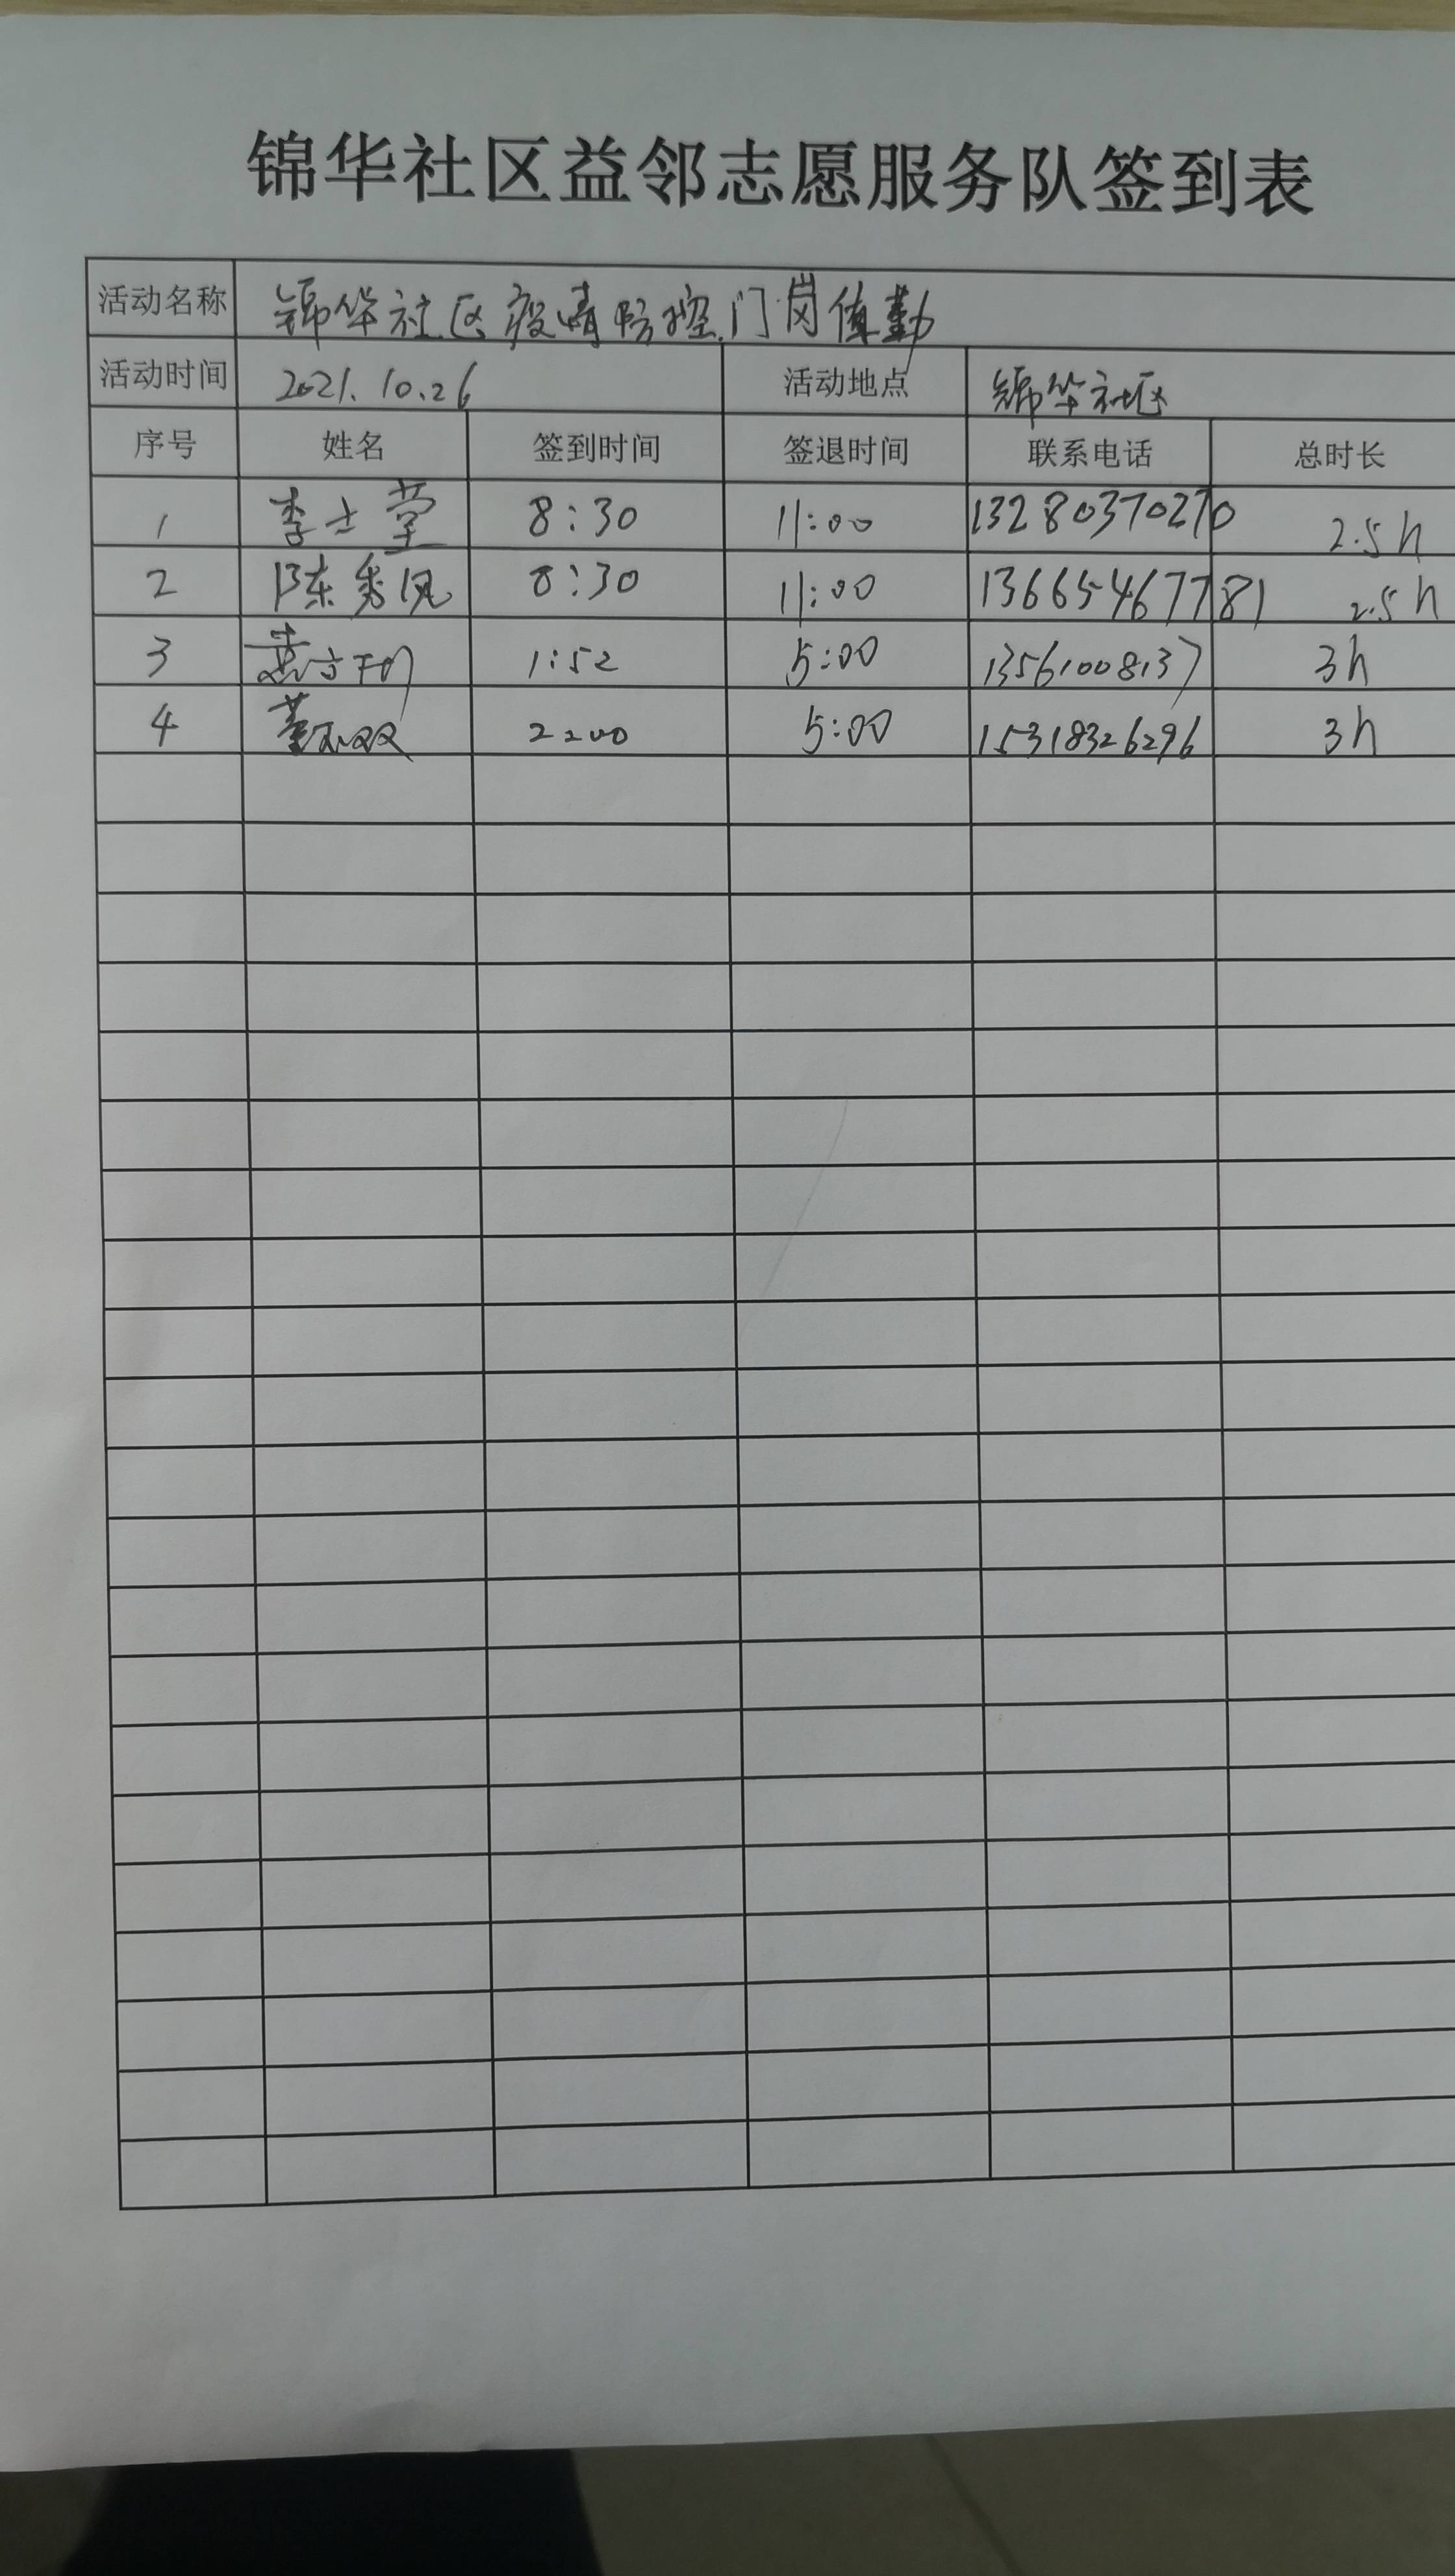 锦华社区益邻志愿服务队签到表
活动名称 锦华社区疫情防控门岗值勤
活动时间 2021.10.26 活动地点 锦华社区
序号 姓名 签到时间 签退时间 联系电话 总时长
1 李士堂 8:30 11:00 13280370270 2.5h
2 陈秀凤 8:30 11:00 13665467781 2.5h
3 1:52 5:00 13561008137 3h
4 董双 2:00 5:00 15318326296 3h